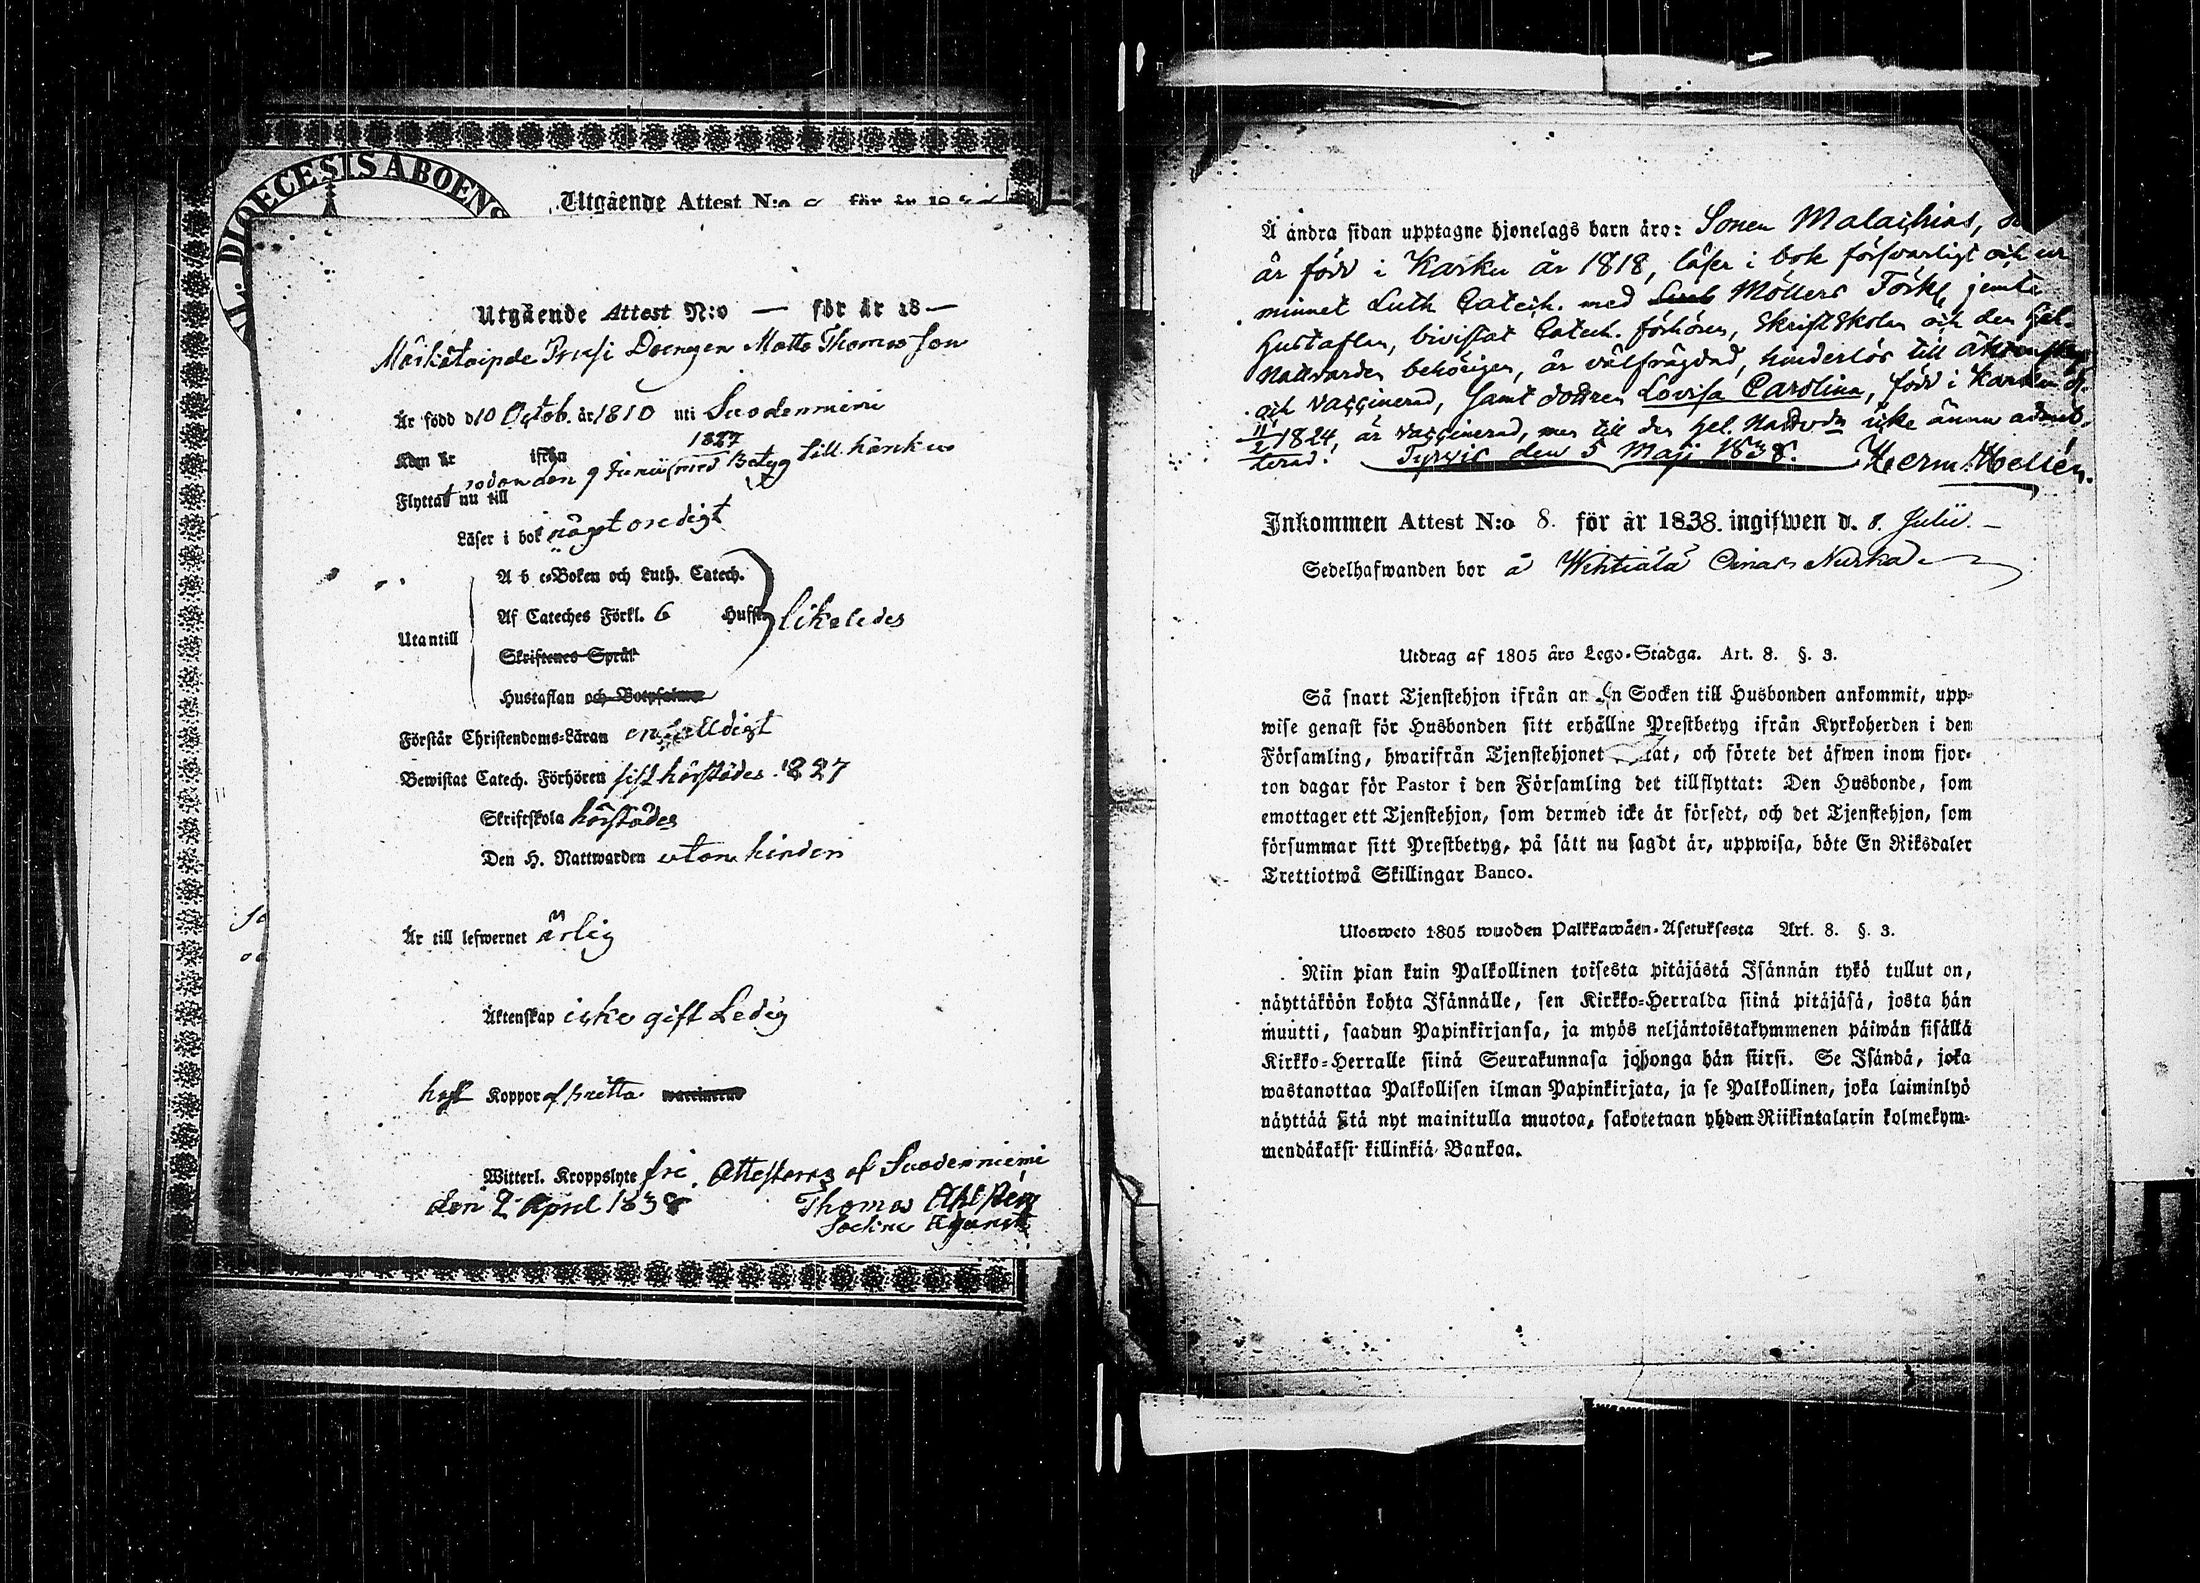 L. DIOECESIS ABOENS
Utgående Attest N:o för år
Utgående Attest N:o — för år 18—
Drengen Matts Thomasson
Är född d 10 Octob. år 1810 uti Suodenniemi
1827
Kom år ifrån
den 9 Junii med Betyg till
Flyttat nu till
Läser i bok något oredigt
A b c-Boken och Luth. Catech.
Af Cateches Förkl. 6 Hufst likaledes
Utantill
Skriftenes Språk
Hustaflan och Botpsalmer
Förstår Christendoms-Läran enfalldigt
Bewistat Catech. Förhören sist härstädes 1827
Skriftskola härstädes
Den H. Nattwarden utan hinder
Är till lefwernet ärlig
Äktenskap icke gift Ledig
haft Koppor
Witterl. Kroppslyte fri. Attesteras af Suodenniemi
den 2 April 1838 Thomas Ahlsten
Å andra sidan upptagne hjonelags barn äro: Sonen Malachias,
är född i Karku år 1818, läser i bok försvarligt och ur
minnet Luth Catech. med Möllers Förkl jemte
Hustaflan, bivistat Catech. förhören, Skriftskolan och den Hel.
Nattvarden behörigen, är välfrägdad, hinderlös till
och vaccinerad, samt dottren Lovisa Carolina, född i Karku d.
11/2 1824, är vaccinerad, men till den Hel. Nattvdn icke ännu admit-
terad. Tyrvis den 5 Maji 1838. Herm. Hellén.
Inkommen Attest N:o 8. för år 1838. ingifwen d. 8. Julii. —
Sedelhafwanden bor å
Utdrag af 1805 års Lego-Stadga. Art. 8. §. 3.
Så snart Tjenstehjon ifrån an n Socken till Husbonden ankommit, upp-
wise genast för Husbonden sitt erhållne Prestbetyg ifrån Kyrkoherden i den
Församling, hwarifrån Tjenstehjonet tat, och förete det äfwen inom fjor-
ton dagar för Pastor i den Församling det tillflyttat: Den Husbonde, som
emottager ett Tjenstehjon, som dermed icke är försedt, och det Tjenstehjon, som
försummar sitt Prestbetyg, på sätt nu sagdt är, uppwisa, böte En Riksdaler
Trettiotwå Skillingar Banco.
Ulosweto 1805 wuoden Palkkawäen-Asetuksesta Art. 8. §. 3.
Niin pian kuin Palkollinen toisesta pitäjästä Isännän tykö tullut on,
näyttäköön kohta Isännälle, sen Kirkko-Herralda siinä pitäjäsä, josta hän
muutti, saadun Papinkirjansa, ja myös neljäntoistakymmenen päiwän sisällä
Kirkko-Herralle siinä Seurakunnasa johonga hän siirsi. Se Isändä, joka
wastanottaa Palkollisen ilman Papinkirjata, ja se Palkollinen, joka laiminlyö
näyttää sitä nyt mainitulla muotoa, sakotetaan yhden Riikintalarin kolmekym-
mendäkaksi killinkiä Bankoa.